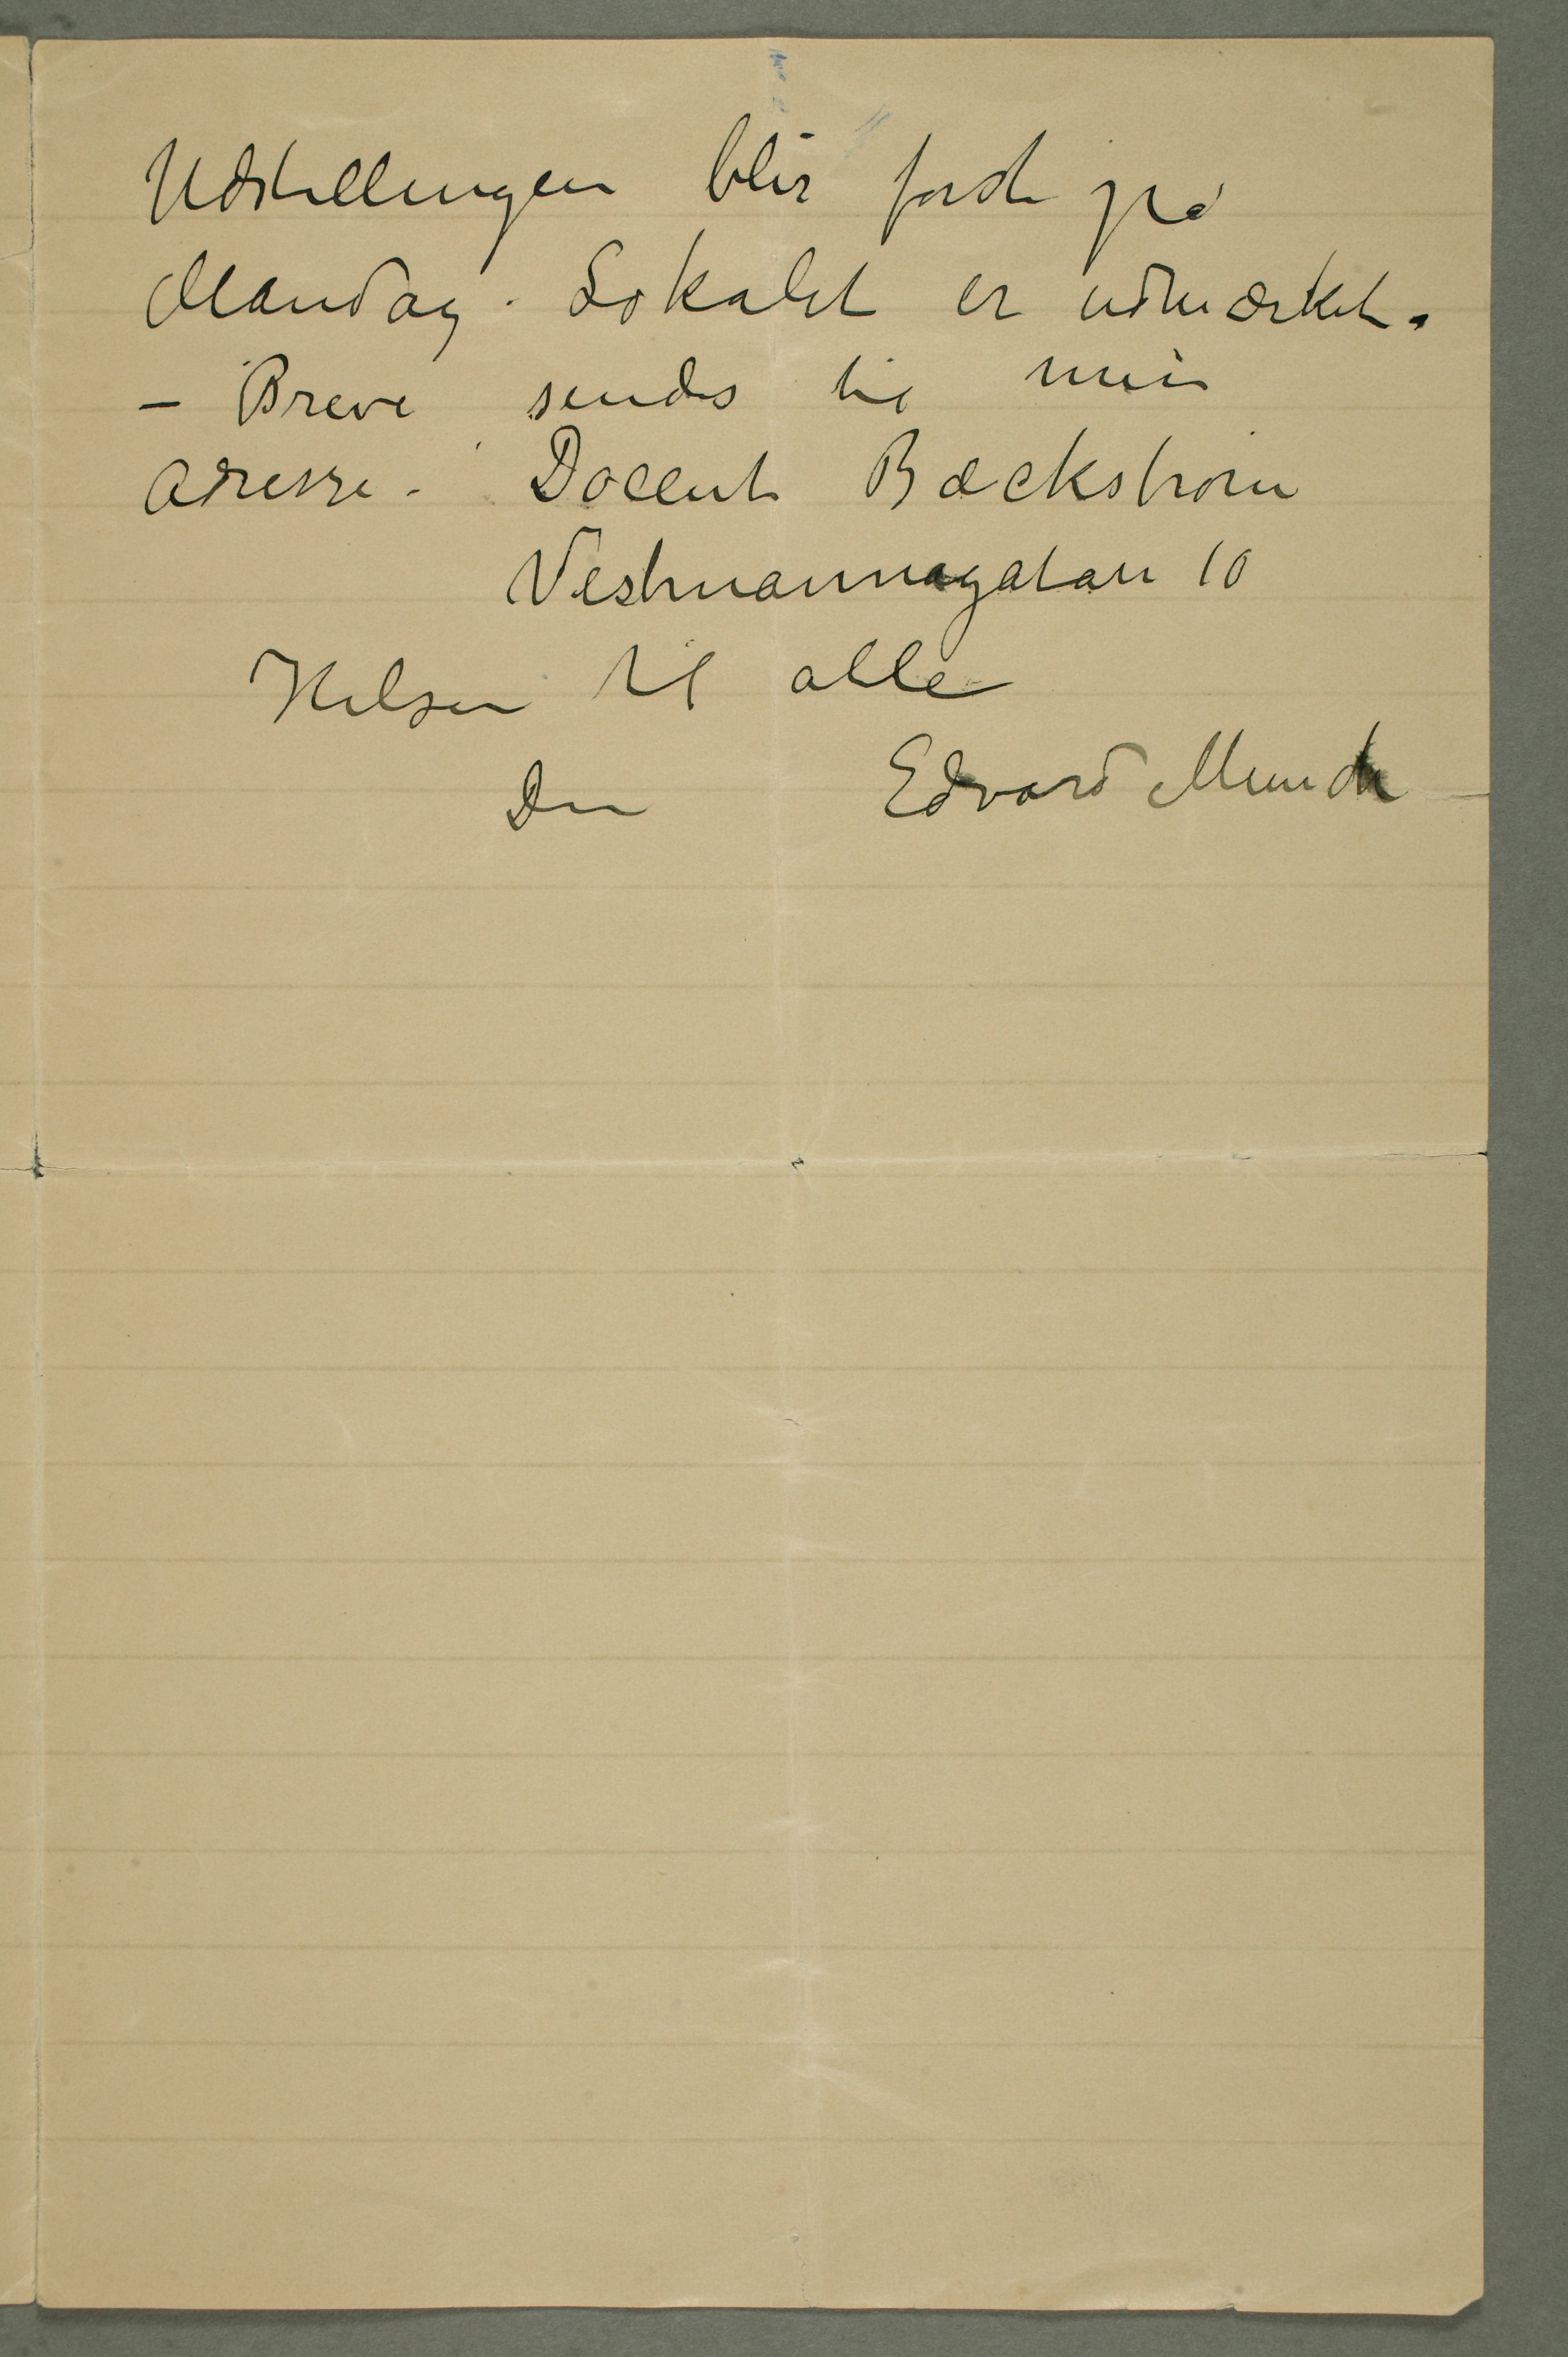 Udstillingen blir først på
Mandag. Lokalet er udmærket.
– Breve sendes til min
adresse. Docent Bæckstrøm
Vestmannagatan 10
Hilsen til alle
Din Edvard Munch